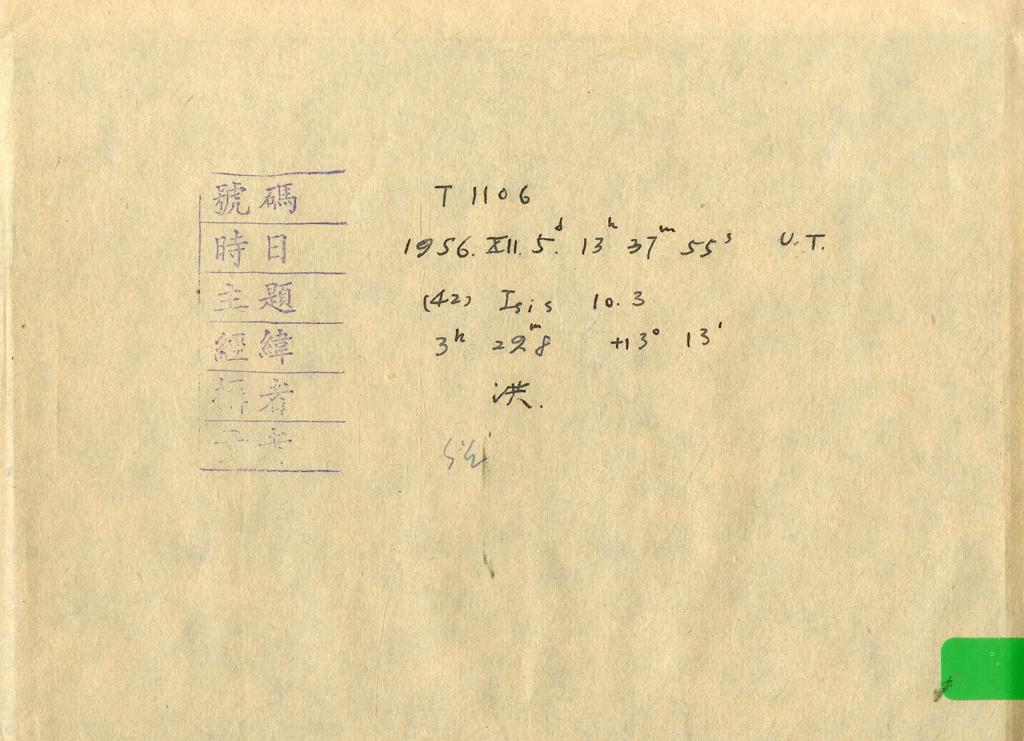 號碼 T 1106
時日 1956. XII. 5.ᵈ 13ʰ 37ᵐ 55ˢ U.T.
主題 (42) Isis 10.3
經緯 3ʰ 29ᵐ8 +13° 13'
攝者 洪.